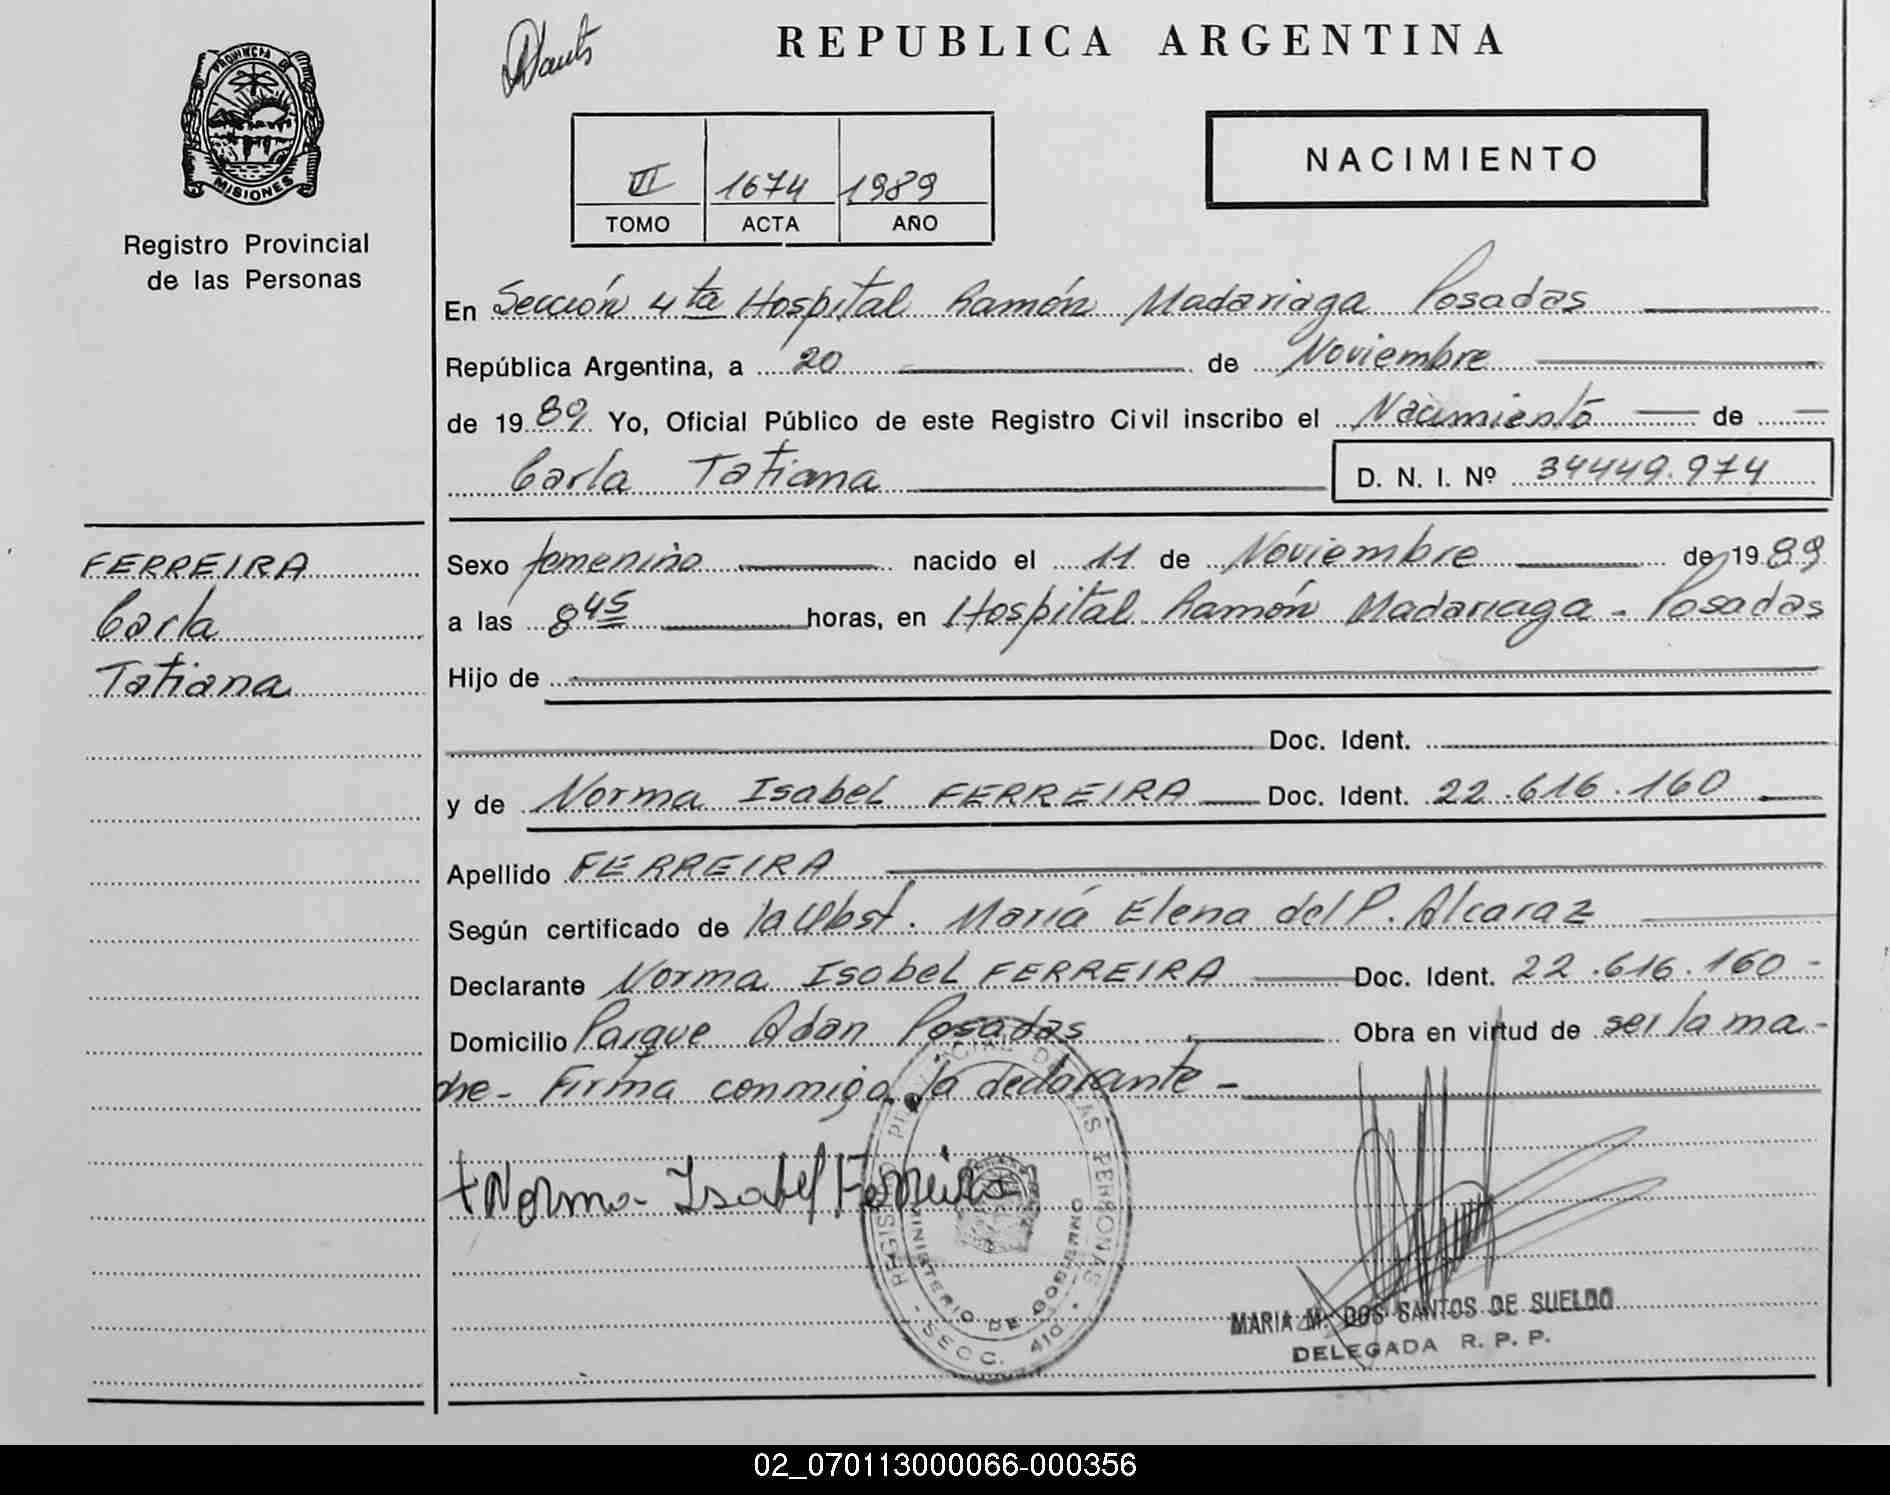 PROVINCIA DE
MISIONES
Registro Provincial
de las Personas
FERREIRA
Carla
Tatiana
REPUBLICA ARGENTINA
NACIMIENTO
1674 1989
TOMO ACTA AÑO
En Sección 4ta Hospital Ramón Madariaga Posadas
República Argentina, a 20 de Noviembre
de 1989 Yo, Oficial Público de este Registro Civil inscribo el Nacimiento de
Carla Tatiana D. N. I. Nº 34449.974
Sexo femenino nacido el 11 de Noviembre de 1989
a las 8 45 horas, en Hospital Ramón Madariaga - Posadas
Hijo de
Doc. Ident.
y de Norma Isabel FERREIRA Doc. Ident. 22.616.160
Apellido FERREIRA
Según certificado de la Obst. María Elena del P. Alcaraz
Declarante Norma Isabel FERREIRA Doc. Ident. 22.616.160 -
Domicilio Parque Adan Posadas Obra en virtud de ser la ma-
dre - Firma conmigo la declarante -
Norma Isabel Ferreira
REGISTRO PROVINCIAL DE LAS PERSONAS
MINISTERIO DE GOBIERNO
SECC. 4ta
MARIA M. DOS SANTOS DE SUELDO
DELEGADA R. P. P.
02_070113000066-000356